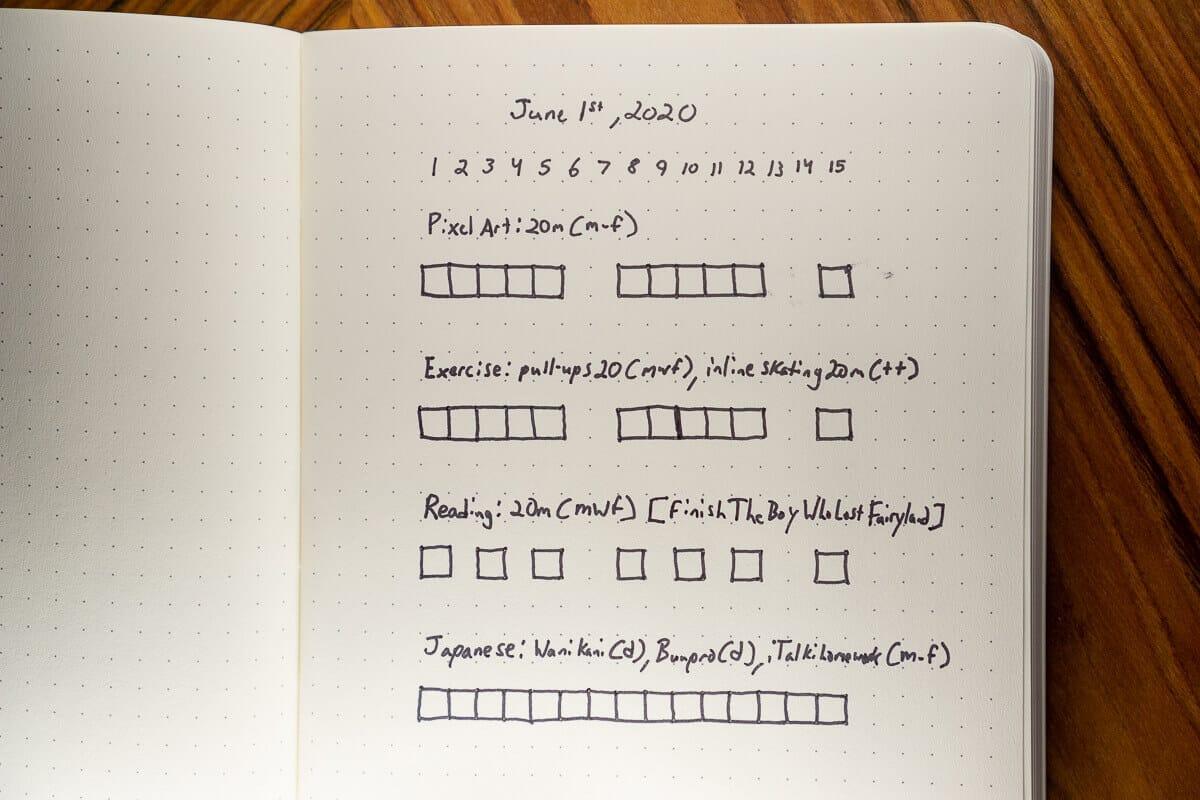 June 1st, 2020
1 2 3 4 5 6 7 8 9 10 11 12 13 14 15
Pixel Art: 20m (m-f)
Exercise: pull-ups 20 (mwf), inline skating 20m (tt)
Reading: 20m (mwf) [Finish The Boy Who Lost Fairyland]
Japanese: WaniKani (d), Bunpro (d), iTalki homework (m-f)